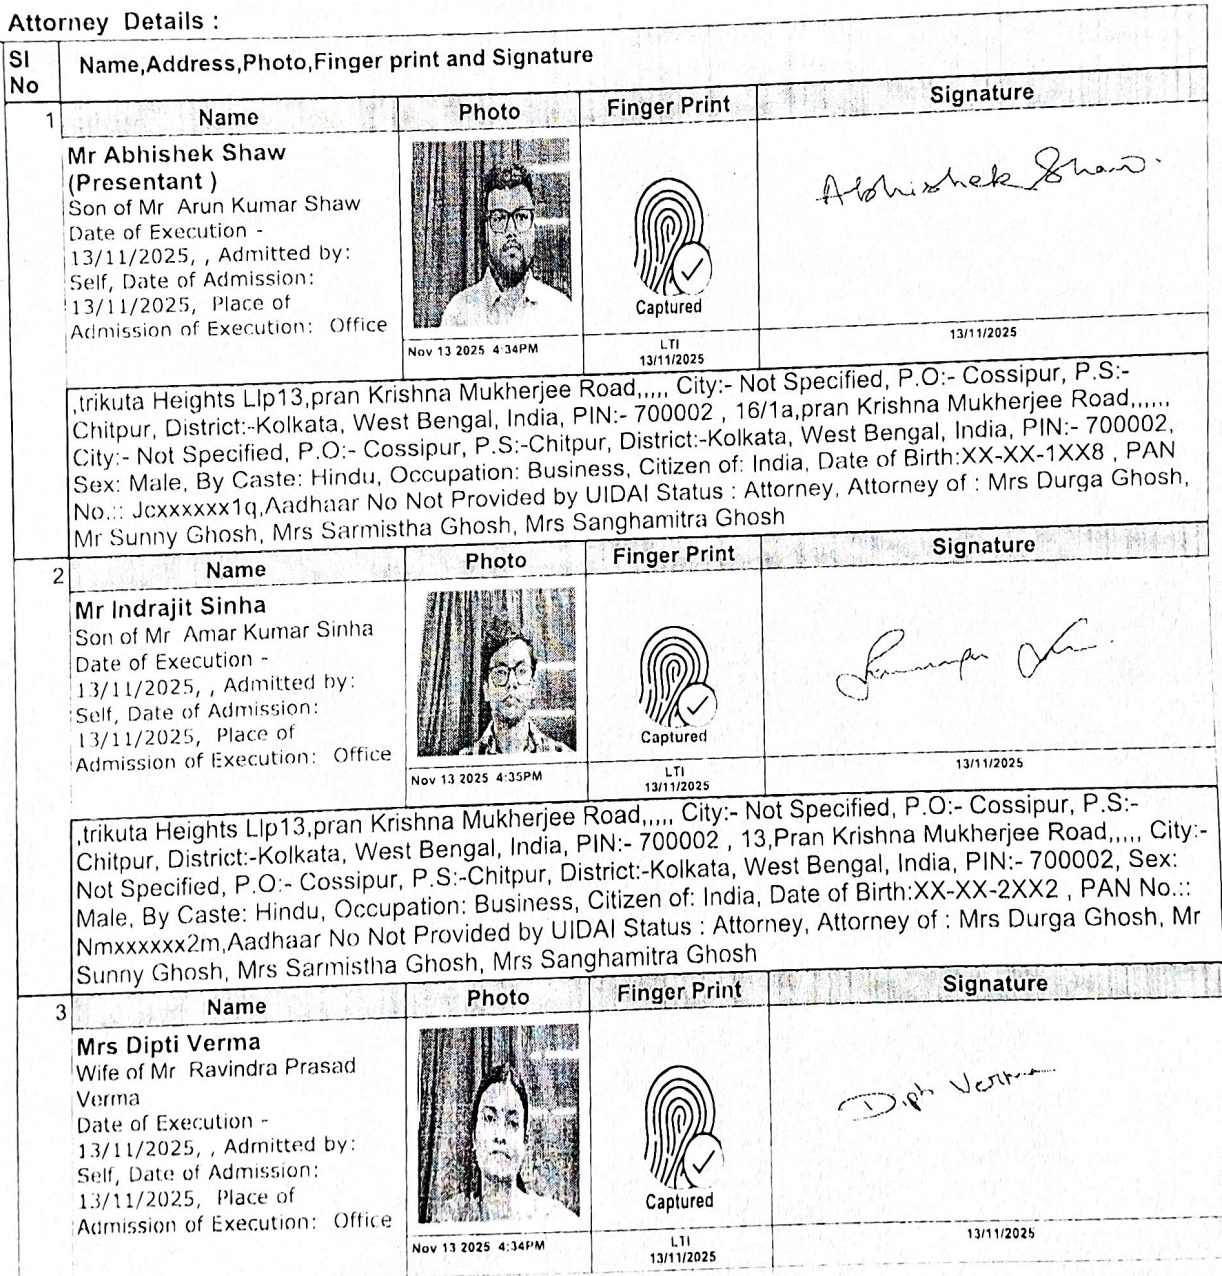 Attorney Details :
Sl No
Name,Address,Photo,Finger print and Signature
1
Name
Photo
Finger Print
Signature
Mr Abhishek Shaw
(Presentant )
Son of Mr Arun Kumar Shaw
Date of Execution -
13/11/2025, , Admitted by:
Self, Date of Admission:
13/11/2025, Place of
Admission of Execution: Office
Captured
Abhishek Shaw
Nov 13 2025 4:34PM
LTI
13/11/2025
13/11/2025
,trikuta Heights Llp13,pran Krishna Mukherjee Road,,,,, City:- Not Specified, P.O:- Cossipur, P.S:-
Chitpur, District:-Kolkata, West Bengal, India, PIN:- 700002 , 16/1a,pran Krishna Mukherjee Road,,,,,,
City:- Not Specified, P.O:- Cossipur, P.S:-Chitpur, District:-Kolkata, West Bengal, India, PIN:- 700002,
Sex: Male, By Caste: Hindu, Occupation: Business, Citizen of: India, Date of Birth:XX-XX-1XX8 , PAN
No.:: Jcxxxxxx1q,Aadhaar No Not Provided by UIDAI Status : Attorney, Attorney of : Mrs Durga Ghosh,
Mr Sunny Ghosh, Mrs Sarmistha Ghosh, Mrs Sanghamitra Ghosh
2
Name
Photo
Finger Print
Signature
Mr Indrajit Sinha
Son of Mr Amar Kumar Sinha
Date of Execution -
13/11/2025, , Admitted by:
Self, Date of Admission:
13/11/2025, Place of
Admission of Execution: Office
Captured
Nov 13 2025 4:35PM
LTI
13/11/2025
13/11/2025
,trikuta Heights Llp13,pran Krishna Mukherjee Road,,,,, City:- Not Specified, P.O:- Cossipur, P.S:-
Chitpur, District:-Kolkata, West Bengal, India, PIN:- 700002 , 13,Pran Krishna Mukherjee Road,,,,, City:-
Not Specified, P.O:- Cossipur, P.S:-Chitpur, District:-Kolkata, West Bengal, India, PIN:- 700002, Sex:
Male, By Caste: Hindu, Occupation: Business, Citizen of: India, Date of Birth:XX-XX-2XX2 , PAN No.::
Nmxxxxxx2m,Aadhaar No Not Provided by UIDAI Status : Attorney, Attorney of : Mrs Durga Ghosh, Mr
Sunny Ghosh, Mrs Sarmistha Ghosh, Mrs Sanghamitra Ghosh
3
Name
Photo
Finger Print
Signature
Mrs Dipti Verma
Wife of Mr Ravindra Prasad
Verma
Date of Execution -
13/11/2025, , Admitted by:
Self, Date of Admission:
13/11/2025, Place of
Admission of Execution: Office
Captured
Dipti Verma
Nov 13 2025 4:34PM
LTI
13/11/2025
13/11/2025